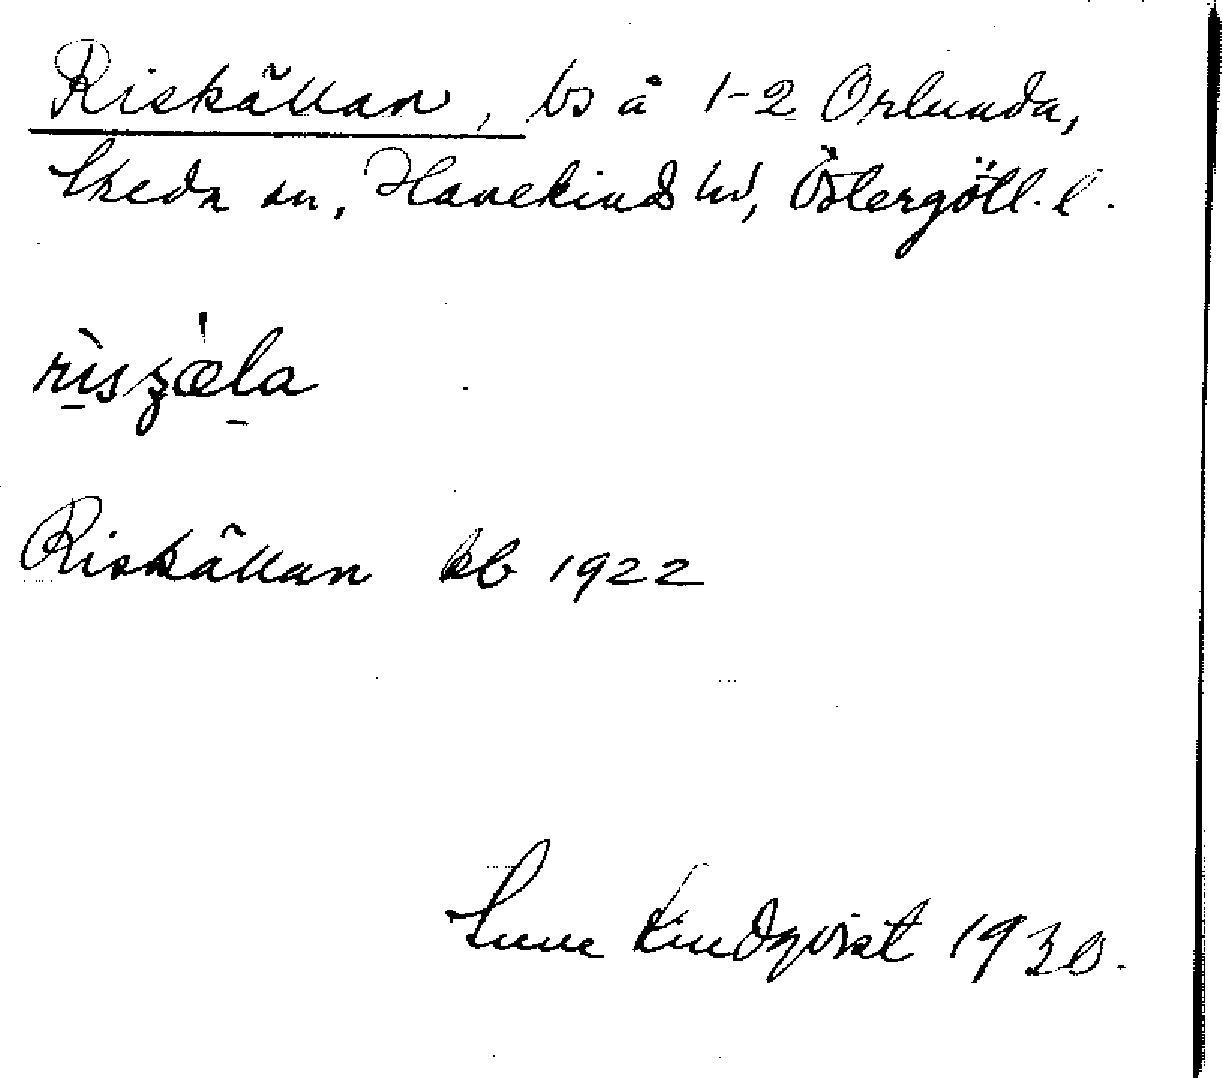 Riskällan, bs å 1-2 Orlunda,
Skeda sn, Hanekinds hd, Östergötl. l.
rìsʒæ̀la
Riskällan kb 1922
Sune Lindqvist 1930.